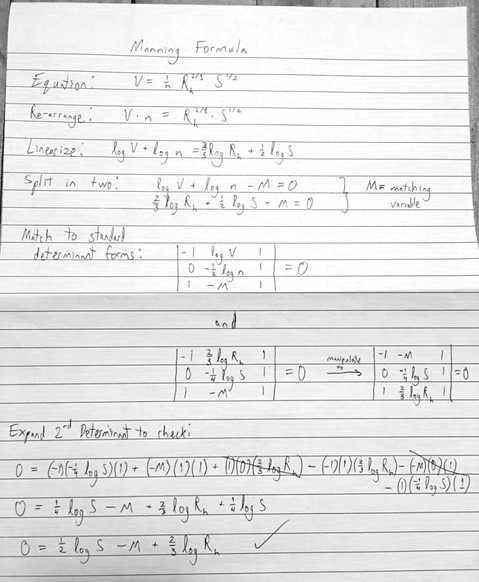 Manning Formula
Equation: V = 1/n R_h^2/3 S^1/2
Re-arrange: V · n = R_h^2/3 · S^1/2
Linearize: log V + log n = 2/3 log R_h + 1/2 log S
Split in two: log V + log n - M = 0
2/3 log R_h + 1/2 log S - M = 0 ] M = matching variable
Match to standard
determinant forms: | -1 log V 1 |
| 0 -1/2 log n 1 | = 0
| 1 -M 1 |
and
| -1 2/3 log R_h 1 | | -1 -M 1 |
| 0 -1/4 log S 1 | = 0 manipulate to → | 0 -1/4 log S 1 | = 0
| 1 -M 1 | | 1 2/3 log R_h 1 |
Expand 2nd Determinant to check:
0 = (-1)(-1/4 log S)(1) + (-M)(1)(1) + (1)(0)(2/3 log R_h) - (-1)(1)(2/3 log R_h) - (-M)(0)(1)
- (1)(-1/4 log S)(1)
0 = 1/4 log S - M + 2/3 log R_h + 1/4 log S
0 = 1/2 log S - M + 2/3 log R_h ✓